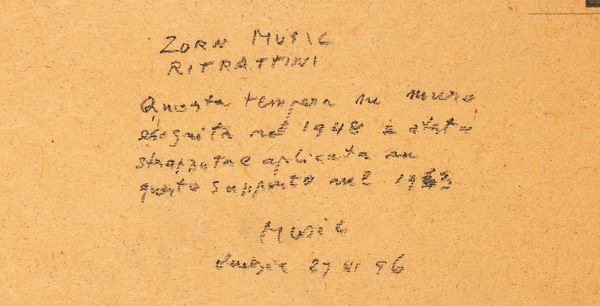 ZORN MUSIC
RITRATTINI
Questa tempera su muro
eseguita nel 1948 è stata
strappata e aplicata su
questo supporto nel 1963
Music
Venezia 27 XI 96